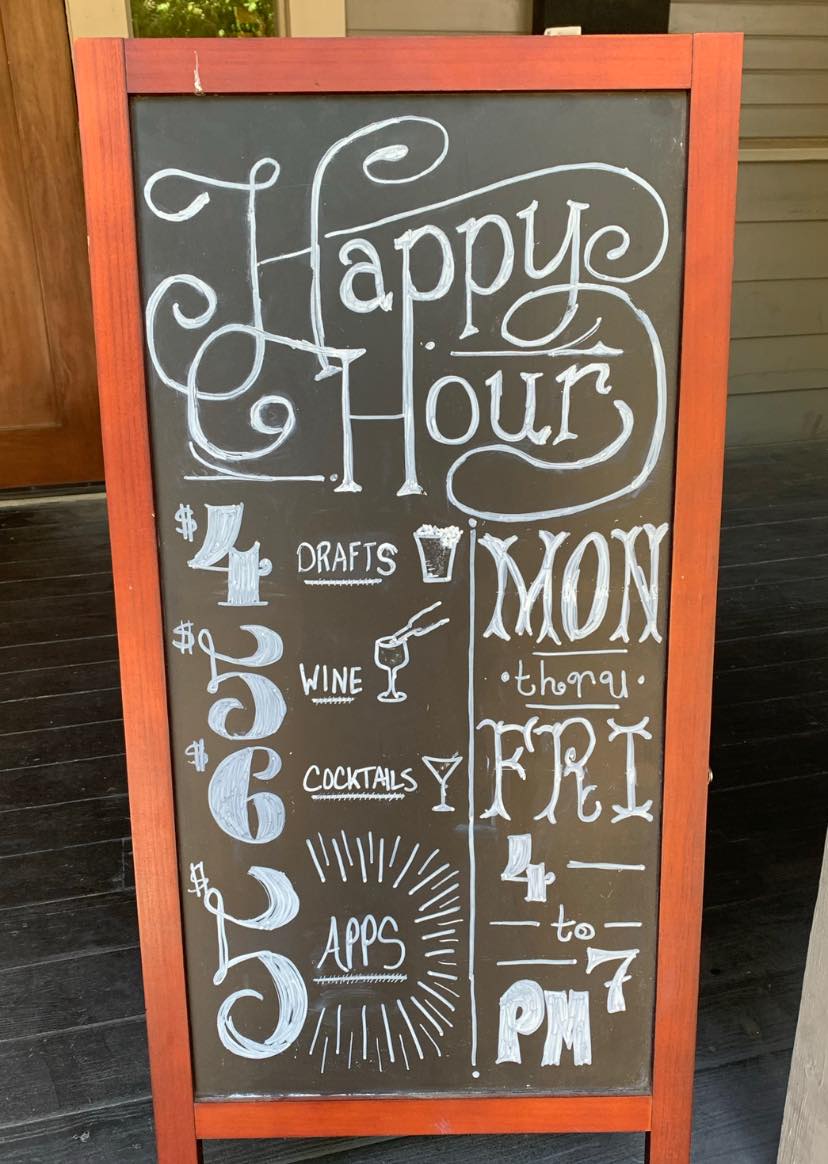 Happy
Hour
$4 DRAFTS
$5 WINE
$6 COCKTAILS
$5 APPS
MON
thru
FRI
4
to
7
PM